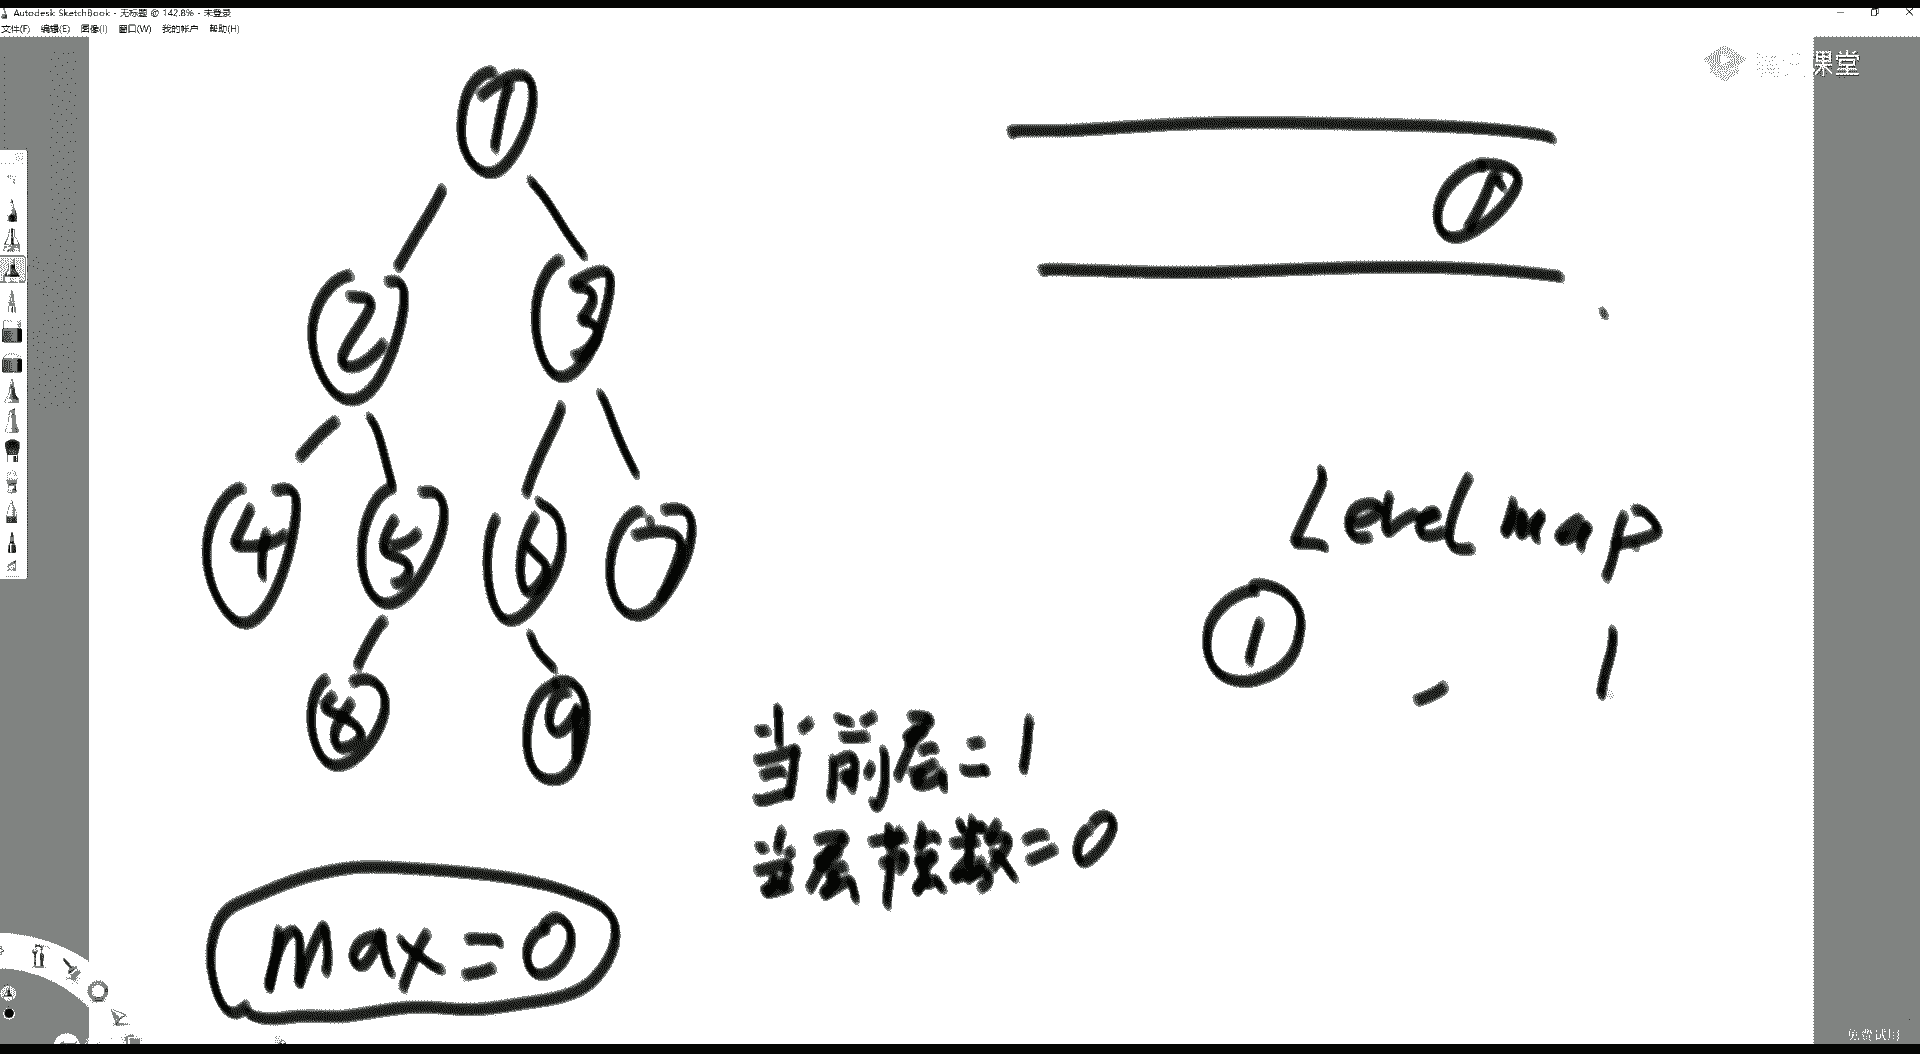 Autodesk SketchBook - 无标题 @ 142.8% - 未登录
文件(F) 编辑(E) 图像(I) 窗口(W) 我的帐户 帮助(H)
课堂
1
1
2 3
4 5 6 7
8 9
Level map
1 - 1
当前层=1
当层节点数=0
max=0
免费试用